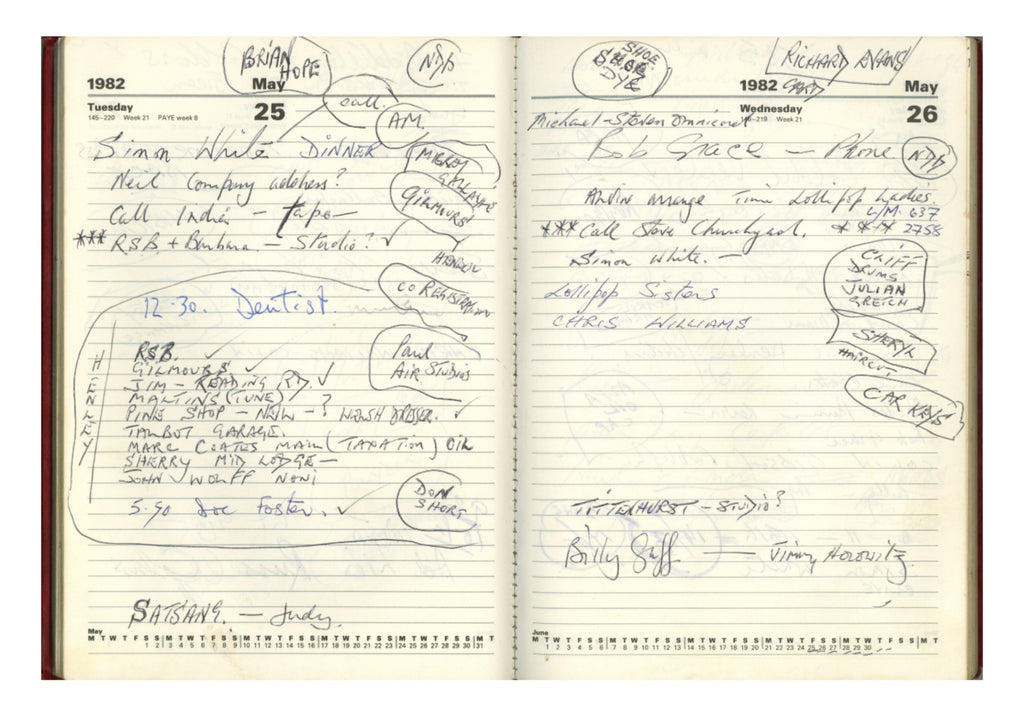 BRIAN HOPE
NDD
1982 May
Tuesday 25
145–220 Week 21 PAYE week 8
call.
AM
Simon White DINNER
Neil Company address?
GILMOURS
Call India — tape —
*** RSB + Barbara — Studio? ✓
CO REGISTRATION
12.30. Dentist
Paul
AIR STUDIOS
HENLEY
RSB. ✓
GILMOURS ✓
JIM — READING RD. ✓
MARTINS (TUNE) ?
PINE SHOP — NEW — ? WELSH DRESSER. ✓
TALBOT GARAGE.
MARC COATES MAIN (TAXATION) OIL
SHERRY MID LODGE —
JOHN WOLFF NONI
DON SHORT
5.50 Doc Foster. ✓
SATSANG. — Judy.
May
M T W T F S S M T W T F S S M T W T F S S M T W T F S S M T W T F S S M T
1 2 3 4 5 6 7 8 9 10 11 12 13 14 15 16 17 18 19 20 21 22 23 24 25 26 27 28 29 30 31
SHOE
DYE
RICHARD EVANS
CARD
1982 May
Wednesday 26
146–219 Week 21
Michael - Steven Omnicord
Bob Grace — Phone
NDD
arrange Time Lollipop Ladies.
L/M. 637
*** Call Steve Churchyard. * * * 2758
Simon White. —
CLIFF
DRUMS
JULIAN
GRETCH
Lollipop Sisters
CHRIS WILLIAMS
SHERYL
HAIRCUT
CAR KEYS
TITTENHURST — STUDIO?
Billy Gaff — Jimmy Horowitz
June
M T W T F S S M T W T F S S M T W T F S S M T W T F S S M T W T F S S M T
1 2 3 4 5 6 7 8 9 10 11 12 13 14 15 16 17 18 19 20 21 22 23 24 25 26 27 28 29 30